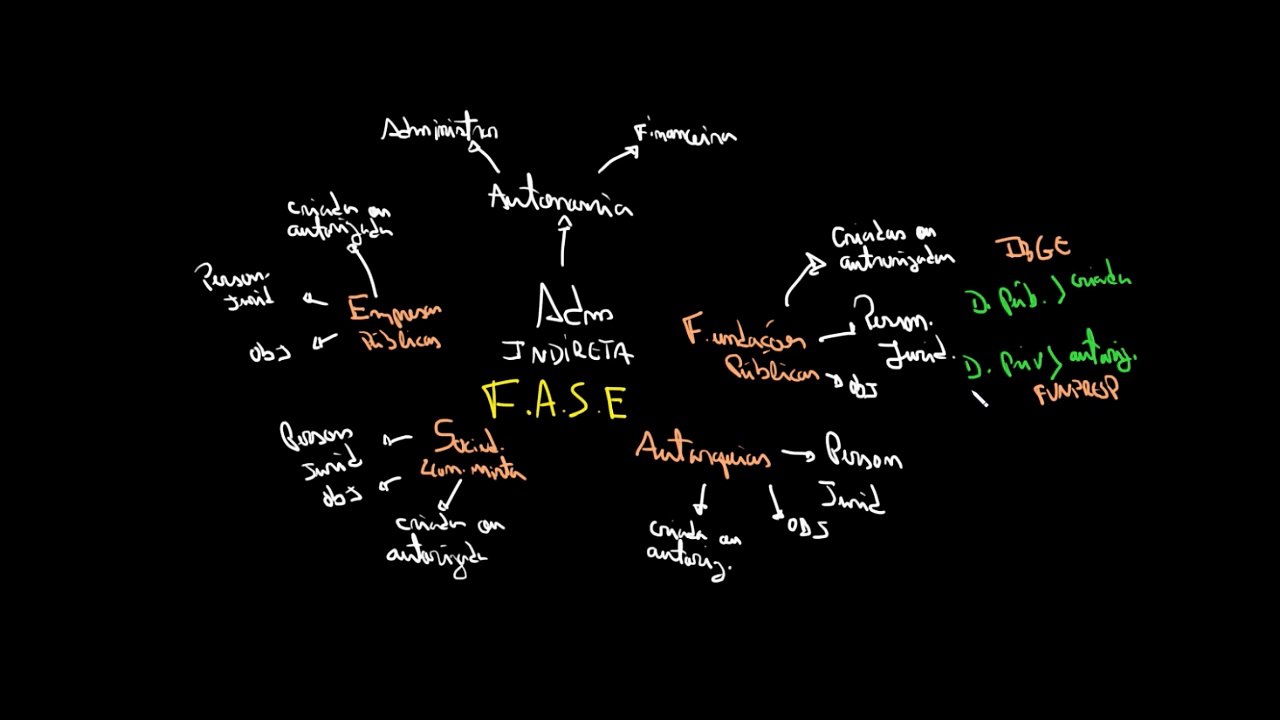 Administra
Financeira
Autonomia
criada ou
autorizada
Person.
Jurid
OBJ
Empresas
Públicas
Adm
INDIRETA
F.A.S.E
Fundações
Públicas
Criadas ou
autorizadas
Person.
Jurid.
OBJ
IBGE
D. Púb. > criada
D. Priv > autoriz.
FUNPRESP
Socied.
Econ. mista
Person
Jurid
OBJ
criada ou
autorizada
Autarquias
Person
Jurid
criada ou
autoriz.
OBJ